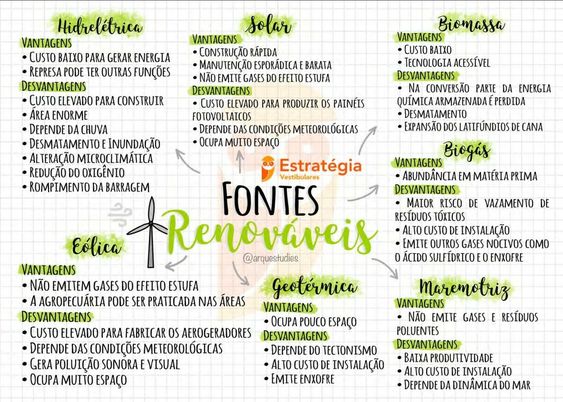 Hidrelétrica
VANTAGENS
• CUSTO BAIXO PARA GERAR ENERGIA
• REPRESA PODE TER OUTRAS FUNÇÕES
DESVANTAGENS
• CUSTO ELEVADO PARA CONSTRUIR
• ÁREA ENORME
• DEPENDE DA CHUVA
• DESMATAMENTO E INUNDAÇÃO
• ALTERAÇÃO MICROCLIMÁTICA
• REDUÇÃO DO OXIGÊNIO
• ROMPIMENTO DA BARRAGEM
Solar
VANTAGENS
• CONSTRUÇÃO RÁPIDA
• MANUTENÇÃO ESPORÁDICA E BARATA
• NÃO EMITE GASES DO EFEITO ESTUFA
DESVANTAGENS
• CUSTO ELEVADO PARA PRODUZIR OS PAINÉIS
FOTOVOLTAICOS
• DEPENDE DAS CONDIÇÕES METEOROLÓGICAS
• OCUPA MUITO ESPAÇO
Biomassa
VANTAGENS
• CUSTO BAIXO
• TECNOLOGIA ACESSÍVEL
DESVANTAGENS
• NA CONVERSÃO PARTE DA ENERGIA
QUÍMICA ARMAZENADA É PERDIDA
• DESMATAMENTO
• EXPANSÃO DOS LATIFÚNDIOS DE CANA
Estratégia
Vestibulares
FONTES
Renováveis
@arquestudies
Biogás
VANTAGENS
• ABUNDÂNCIA EM MATÉRIA PRIMA
DESVANTAGENS
• MAIOR RISCO DE VAZAMENTO DE
RESÍDUOS TÓXICOS
• ALTO CUSTO DE INSTALAÇÃO
• EMITE OUTROS GASES NOCIVOS COMO
O ÁCIDO SULFÍDRICO E O ENXOFRE
Eólica
VANTAGENS
• NÃO EMITEM GASES DO EFEITO ESTUFA
• A AGROPECUÁRIA PODE SER PRATICADA NAS ÁREAS
DESVANTAGENS
• CUSTO ELEVADO PARA FABRICAR OS AEROGERADORES
• DEPENDE DAS CONDIÇÕES METEOROLÓGICAS
• GERA POLUIÇÃO SONORA E VISUAL
• OCUPA MUITO ESPAÇO
Geotérmica
VANTAGENS
• OCUPA POUCO ESPAÇO
DESVANTAGENS
• DEPENDE DO TECTONISMO
• ALTO CUSTO DE INSTALAÇÃO
• EMITE ENXOFRE
Maremotriz
VANTAGENS
• NÃO EMITE GASES E RESÍDUOS
POLUENTES
DESVANTAGENS
• BAIXA PRODUTIVIDADE
• ALTO CUSTO DE INSTALAÇÃO
• DEPENDE DA DINÂMICA DO MAR